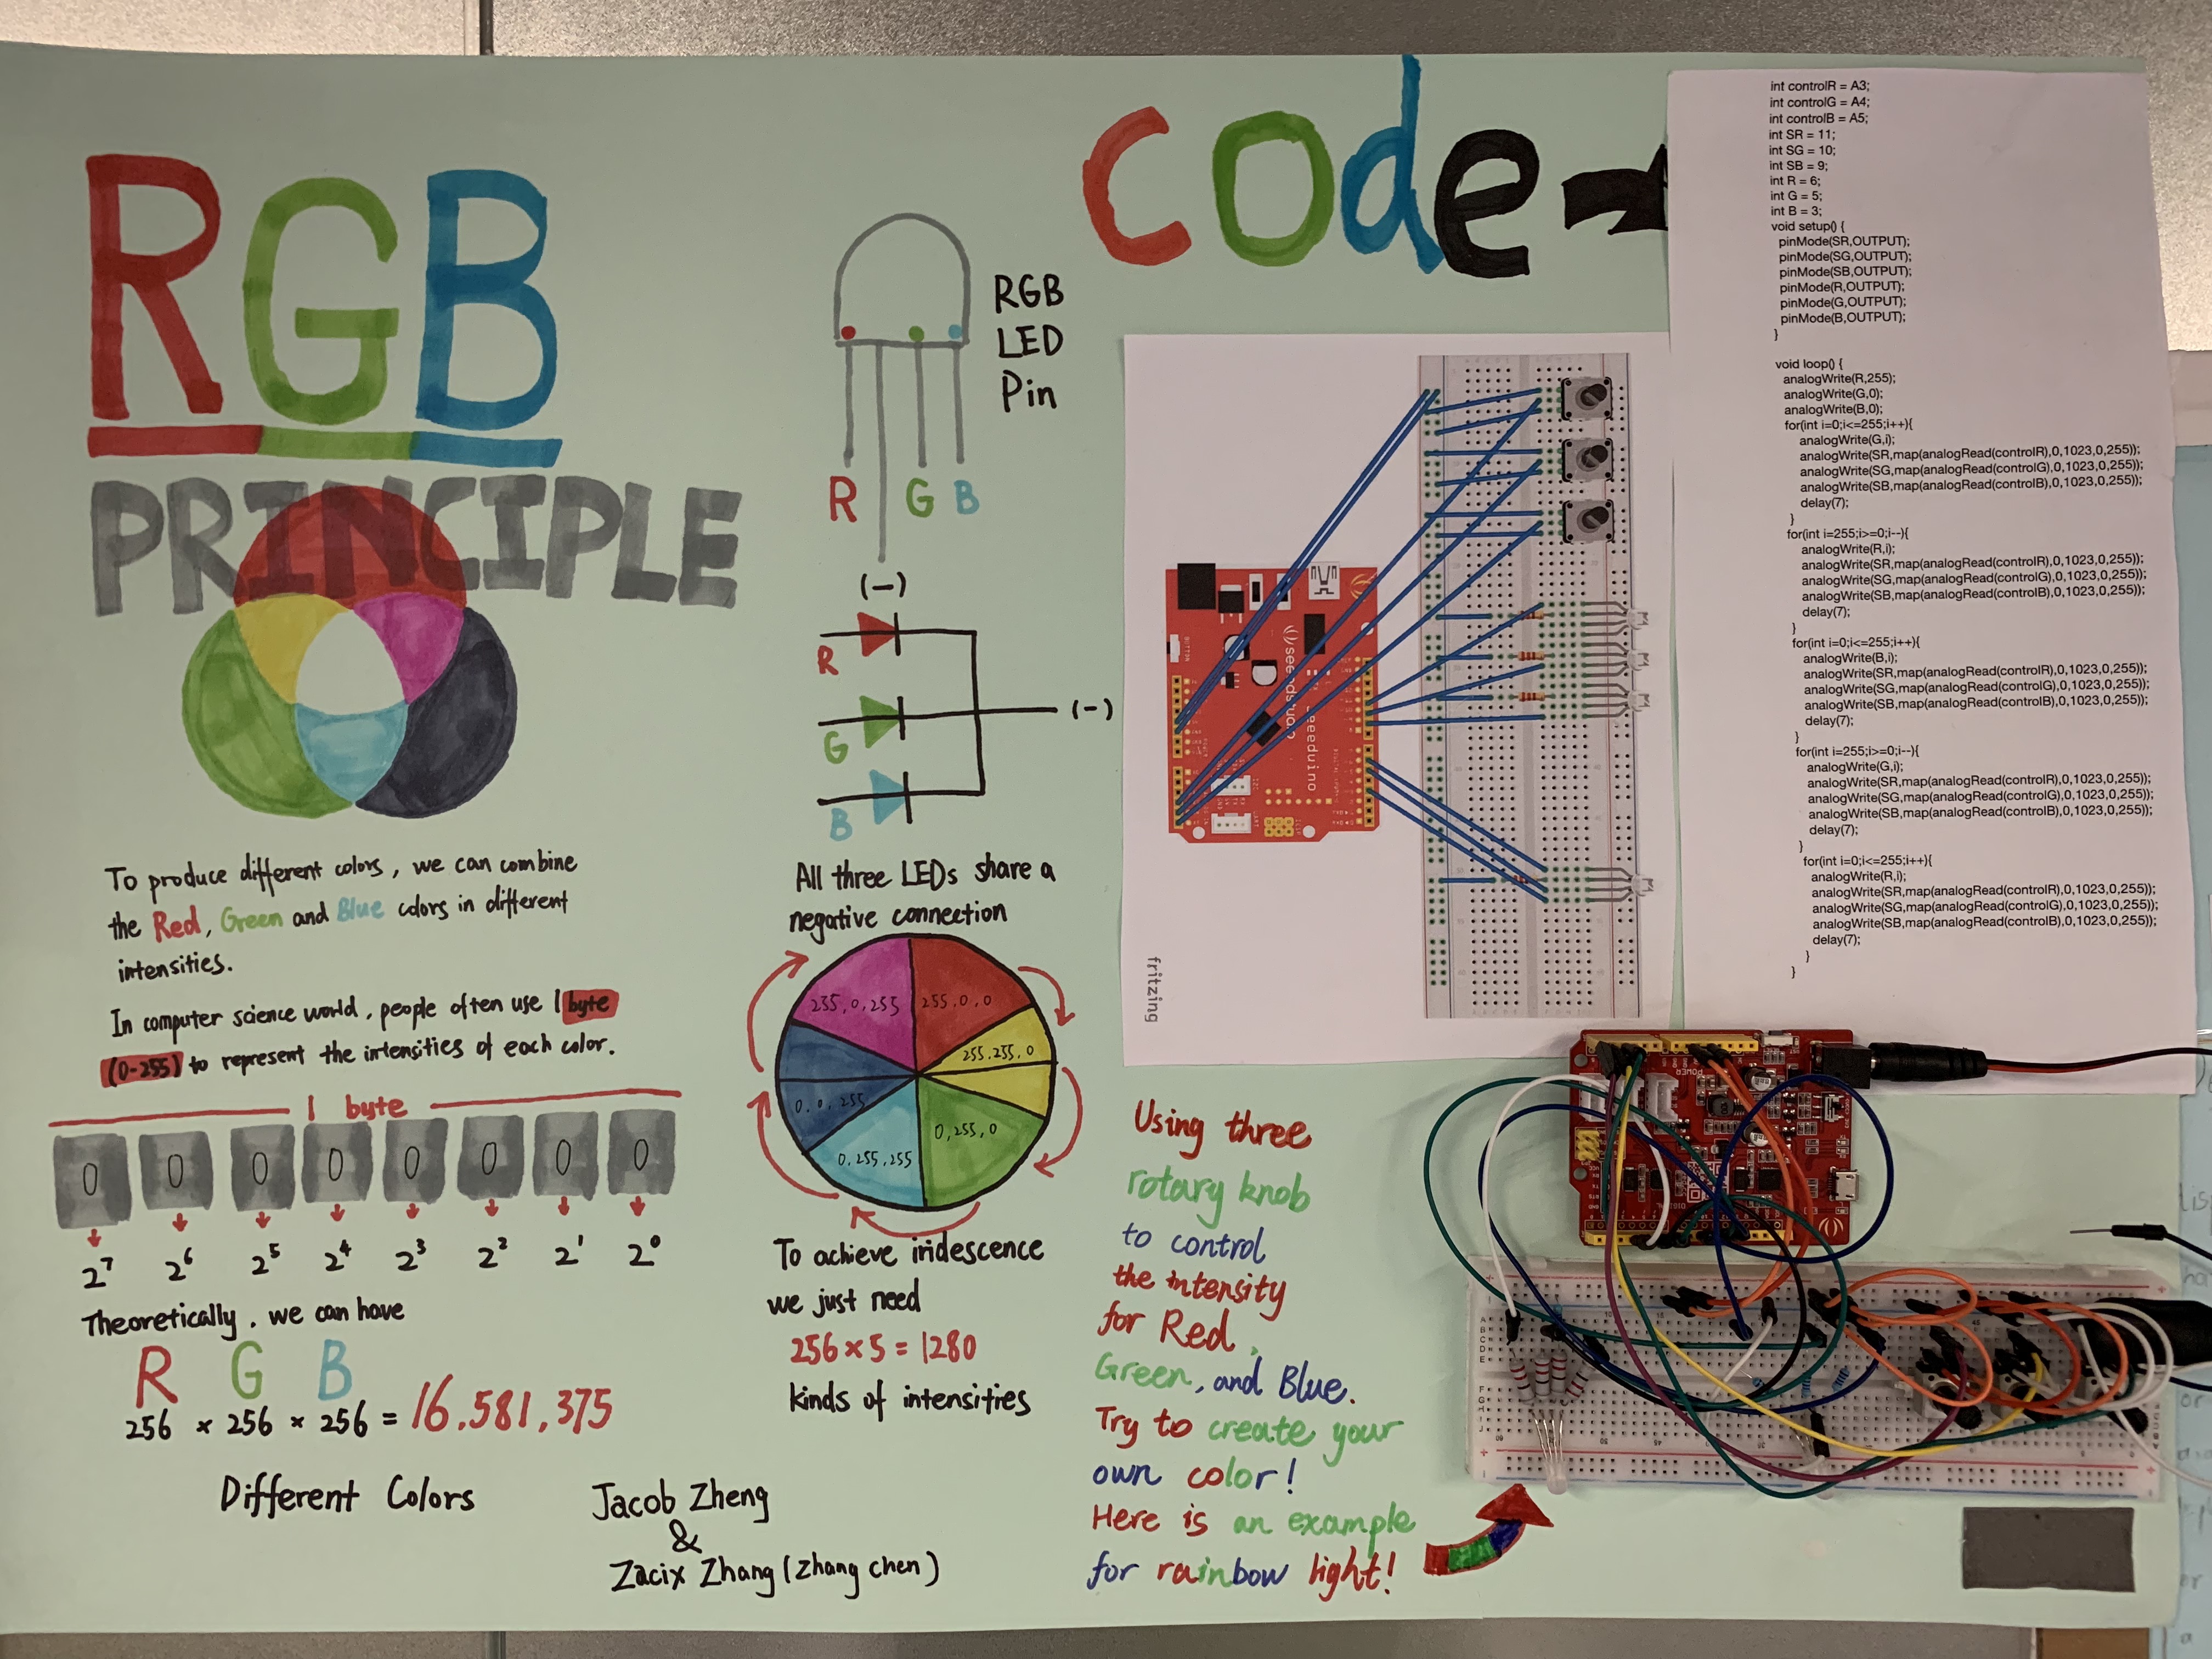 RGB
PRINCIPLE
To produce different colors, we can combine
the Red, Green and Blue colors in different
intensities.
In computer science world, people often use 1 byte
(0-255) to represent the intensities of each color.
1 byte
0 0 0 0 0 0 0 0
2⁷ 2⁶ 2⁵ 2⁴ 2³ 2² 2¹ 2⁰
Theoretically, we can have
R G B
256 × 256 × 256 = 16.581,375
Different Colors
Jacob Zheng
&
Zacix Zhang (Zhang chen)
RGB
LED
Pin
R G B
(-)
R
G
B
(-)
All three LEDs share a
negative connection
255,0,255
255.0.0
255.255,0
0,255,0
0.255,255
0.0.255
To achieve iridescence
we just need
256 × 5 = 1280
kinds of intensities
Code
seeedstudio
seeeduino
fritzing
Using three
rotary knob
to control
the intensity
for Red,
Green, and Blue.
Try to create your
own color!
Here is an example
for rainbow light!
int controlR = A3;
int controlG = A4;
int controlB = A5;
int SR = 11;
int SG = 10;
int SB = 9;
int R = 6;
int G = 5;
int B = 3;
void setup() {
pinMode(SR,OUTPUT);
pinMode(SG,OUTPUT);
pinMode(SB,OUTPUT);
pinMode(R,OUTPUT);
pinMode(G,OUTPUT);
pinMode(B,OUTPUT);
}
void loop() {
analogWrite(R,255);
analogWrite(G,0);
analogWrite(B,0);
for(int i=0;i<=255;i++){
analogWrite(G,i);
analogWrite(SR,map(analogRead(controlR),0,1023,0,255));
analogWrite(SG,map(analogRead(controlG),0,1023,0,255));
analogWrite(SB,map(analogRead(controlB),0,1023,0,255));
delay(7);
}
for(int i=255;i>=0;i--){
analogWrite(R,i);
analogWrite(SR,map(analogRead(controlR),0,1023,0,255));
analogWrite(SG,map(analogRead(controlG),0,1023,0,255));
analogWrite(SB,map(analogRead(controlB),0,1023,0,255));
delay(7);
}
for(int i=0;i<=255;i++){
analogWrite(B,i);
analogWrite(SR,map(analogRead(controlR),0,1023,0,255));
analogWrite(SG,map(analogRead(controlG),0,1023,0,255));
analogWrite(SB,map(analogRead(controlB),0,1023,0,255));
delay(7);
}
for(int i=255;i>=0;i--){
analogWrite(G,i);
analogWrite(SR,map(analogRead(controlR),0,1023,0,255));
analogWrite(SG,map(analogRead(controlG),0,1023,0,255));
analogWrite(SB,map(analogRead(controlB),0,1023,0,255));
delay(7);
}
for(int i=0;i<=255;i++){
analogWrite(R,i);
analogWrite(SR,map(analogRead(controlR),0,1023,0,255));
analogWrite(SG,map(analogRead(controlG),0,1023,0,255));
analogWrite(SB,map(analogRead(controlB),0,1023,0,255));
delay(7);
}
}
POWER
DIGITAL